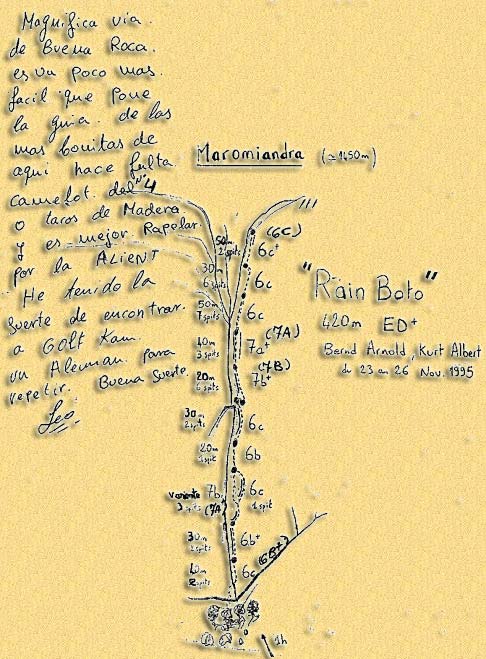 Magnifica via
de Buena Roca.
es un poco mas.
facil que Pone
la guia. de las
mas bonitas de
aqui hace fulta
camelot. del nº4
o tacos de Madera
y es mejor. Rapelar
por la ALIENT
He tenido la
Suerte de encontrar.
a GOLT Kam.
un Aleman. para
repetir. Buena Suerte.
Leo
Maromiandra (≃1450m)
"Rain Boto"
420m ED+
Bernd Arnold, Kurt Albert
du 23 au 26 Nov. 1995
(6C)
50m 6c+
2 spits
30m 6c
6 spits
50m 6c
7 spits
(7A)
40m 7a+
3 spits
(7B)
20m 7b+
6 spits
30m 6c
2 spits
20m 6b
spit
variante 7b 6c
3 spits (7A) 1 spit
30m 6b+
2 spits
(6B+)
40m 6c
2 spits
1h